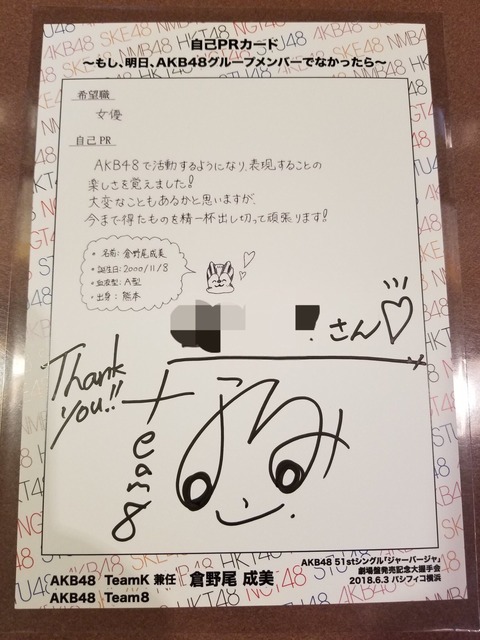 自己PRカード
～もし、明日、AKB48グループメンバーでなかったら～
希望職
女優
自己PR
AKB48で活動するようになり、表現することの
楽しさを覚えました!
大変なこともあるかと思いますが、
今まで得たものを精一杯出し切って頑張ります!!
• 名前: 倉野尾成美
• 誕生日: 2000/11/8
• 血液型: A型
• 出身: 熊本
さん
Thank
you!!
team8
なるみ
AKB48 TeamK 兼任 倉野尾 成美
AKB48 Team8
AKB48 51stシングル「ジャーバージャ」
劇場盤発売記念大握手会
2018.6.3 パシフィコ横浜